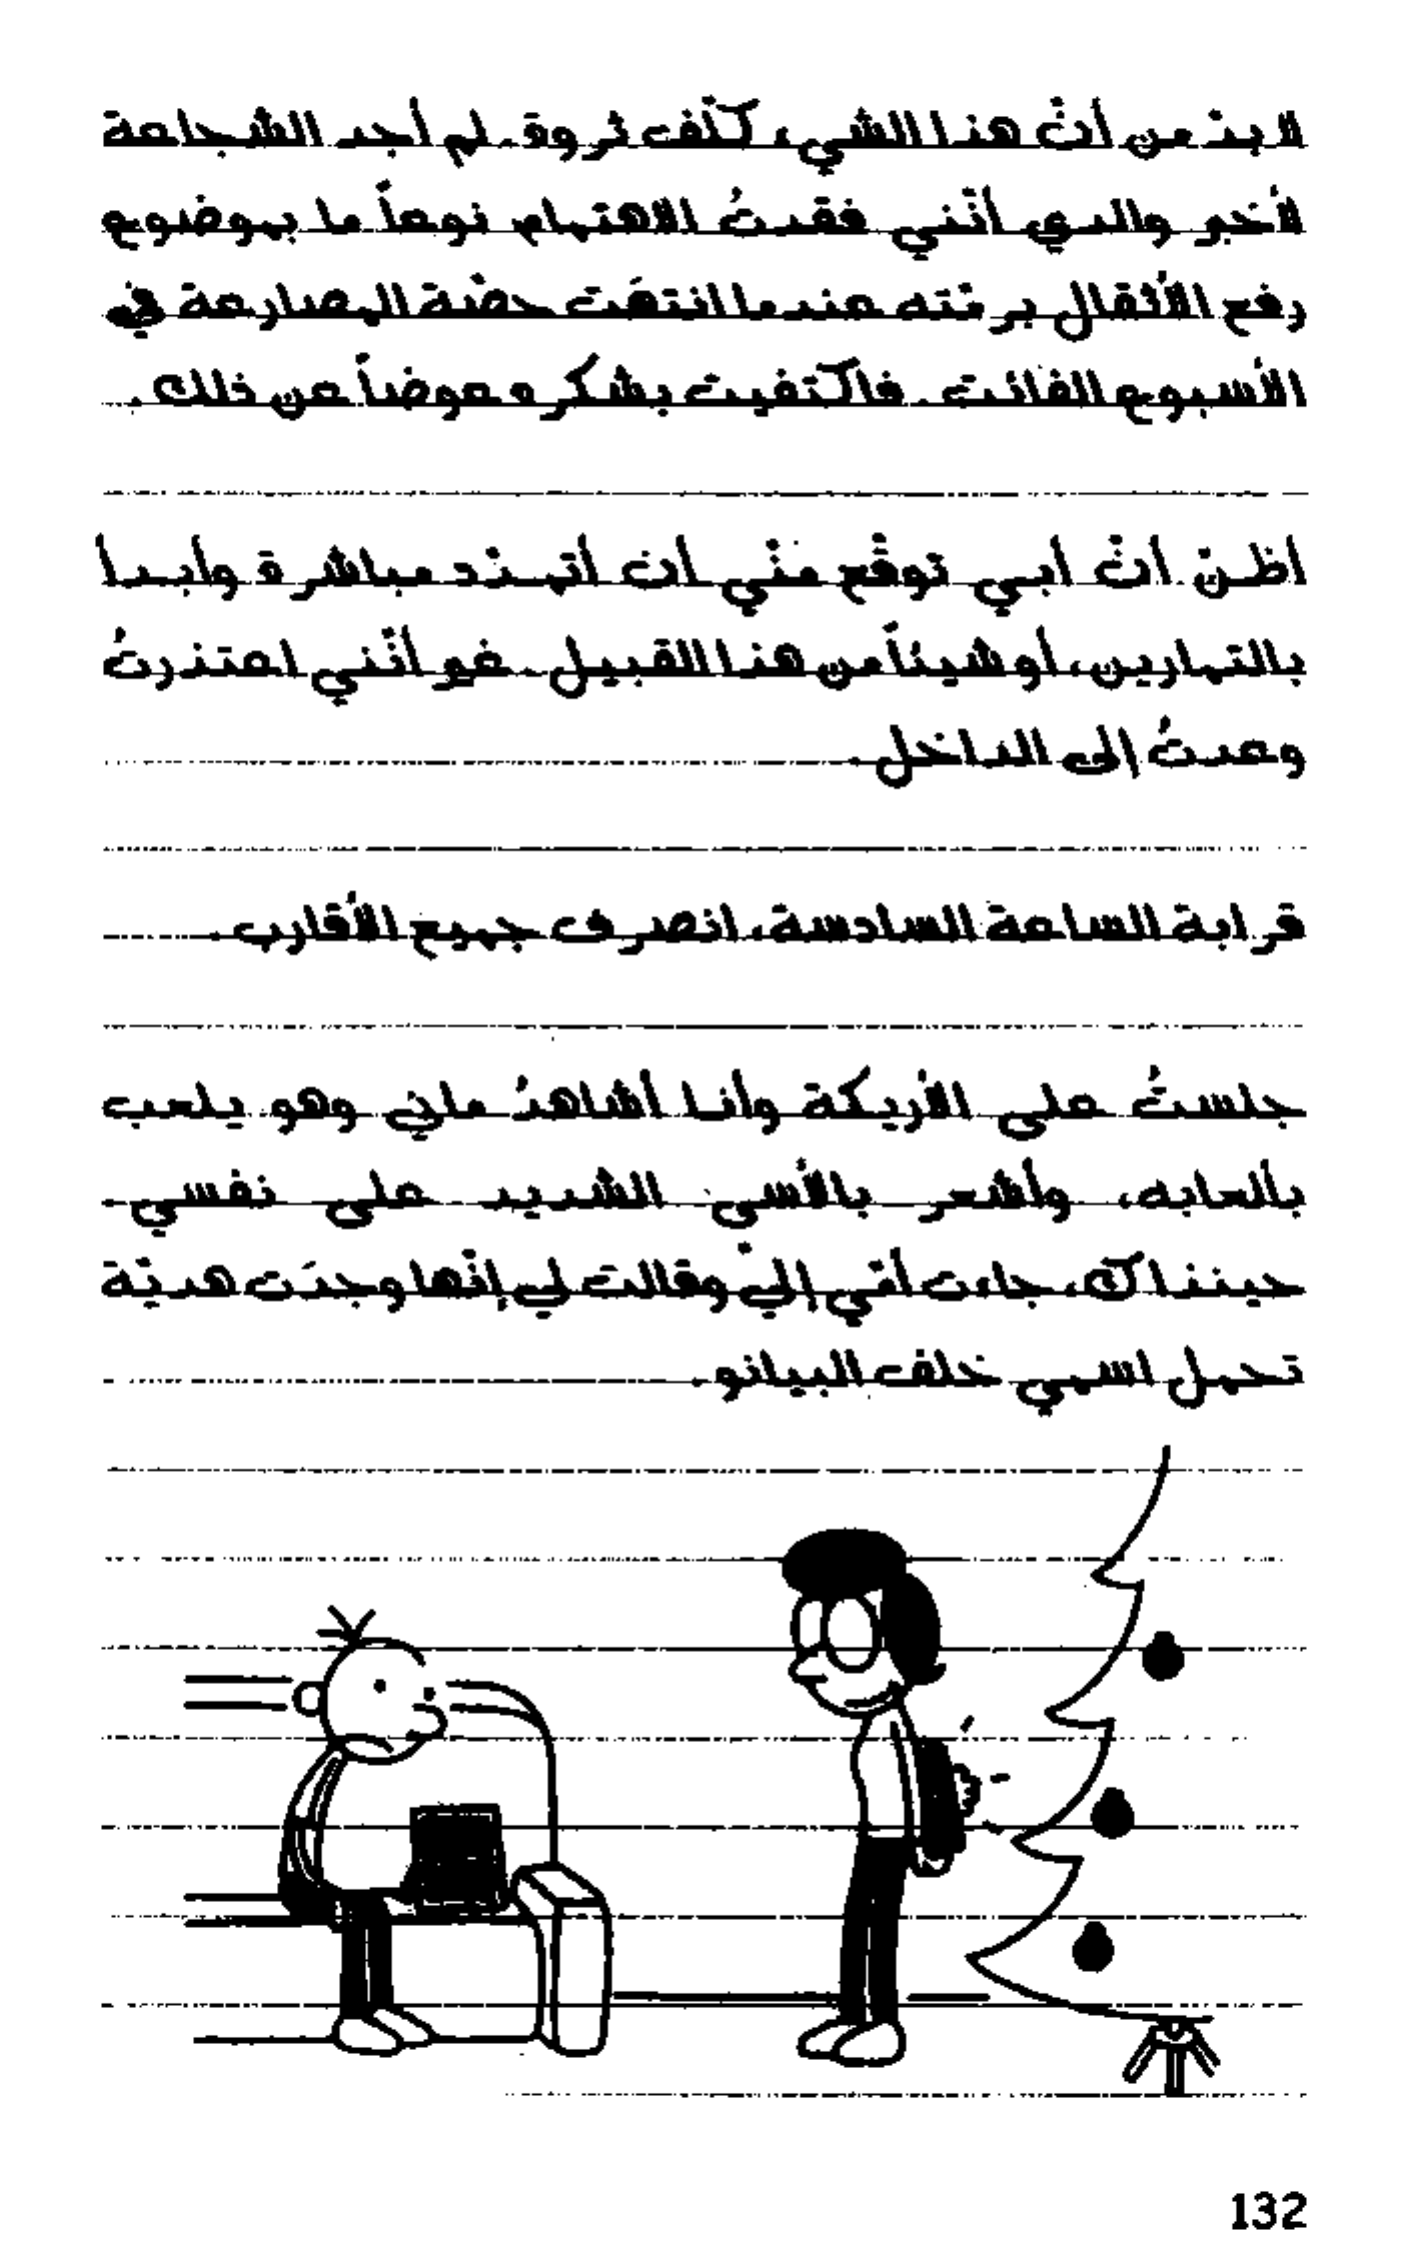 لا بدّ من أنّ هذا الشيء كلّف ثروة. لم أجد الشجاعة
لأخبر والدي أنّني فقدتُ الاهتمام نوعاً ما بموضوع
رفع الأثقال برمّته عندما انتهَت حصّة المصارعة في
الأسبوع الفائت. فاكتفيت بشكره عوضاً عن ذلك.
أظنّ أنّ أبي توقّع منّي أن أتمدّد مباشرة وأبدأ
بالتمارين، أو شيئاً من هذا القبيل. غير أنّني اعتذرتُ
وعدتُ إلى الداخل.
قرابة الساعة السادسة، انصرف جميع الأقارب.
جلستُ على الأريكة وأنا أشاهدُ ماني وهو يلعب
بألعابه، وأشعر بالأسى الشديد على نفسي.
حينذاك، جاءت أمّي إليّ وقالت لي إنّها وجدَت هديّة
تحمل اسمي خلف البيانو.
132